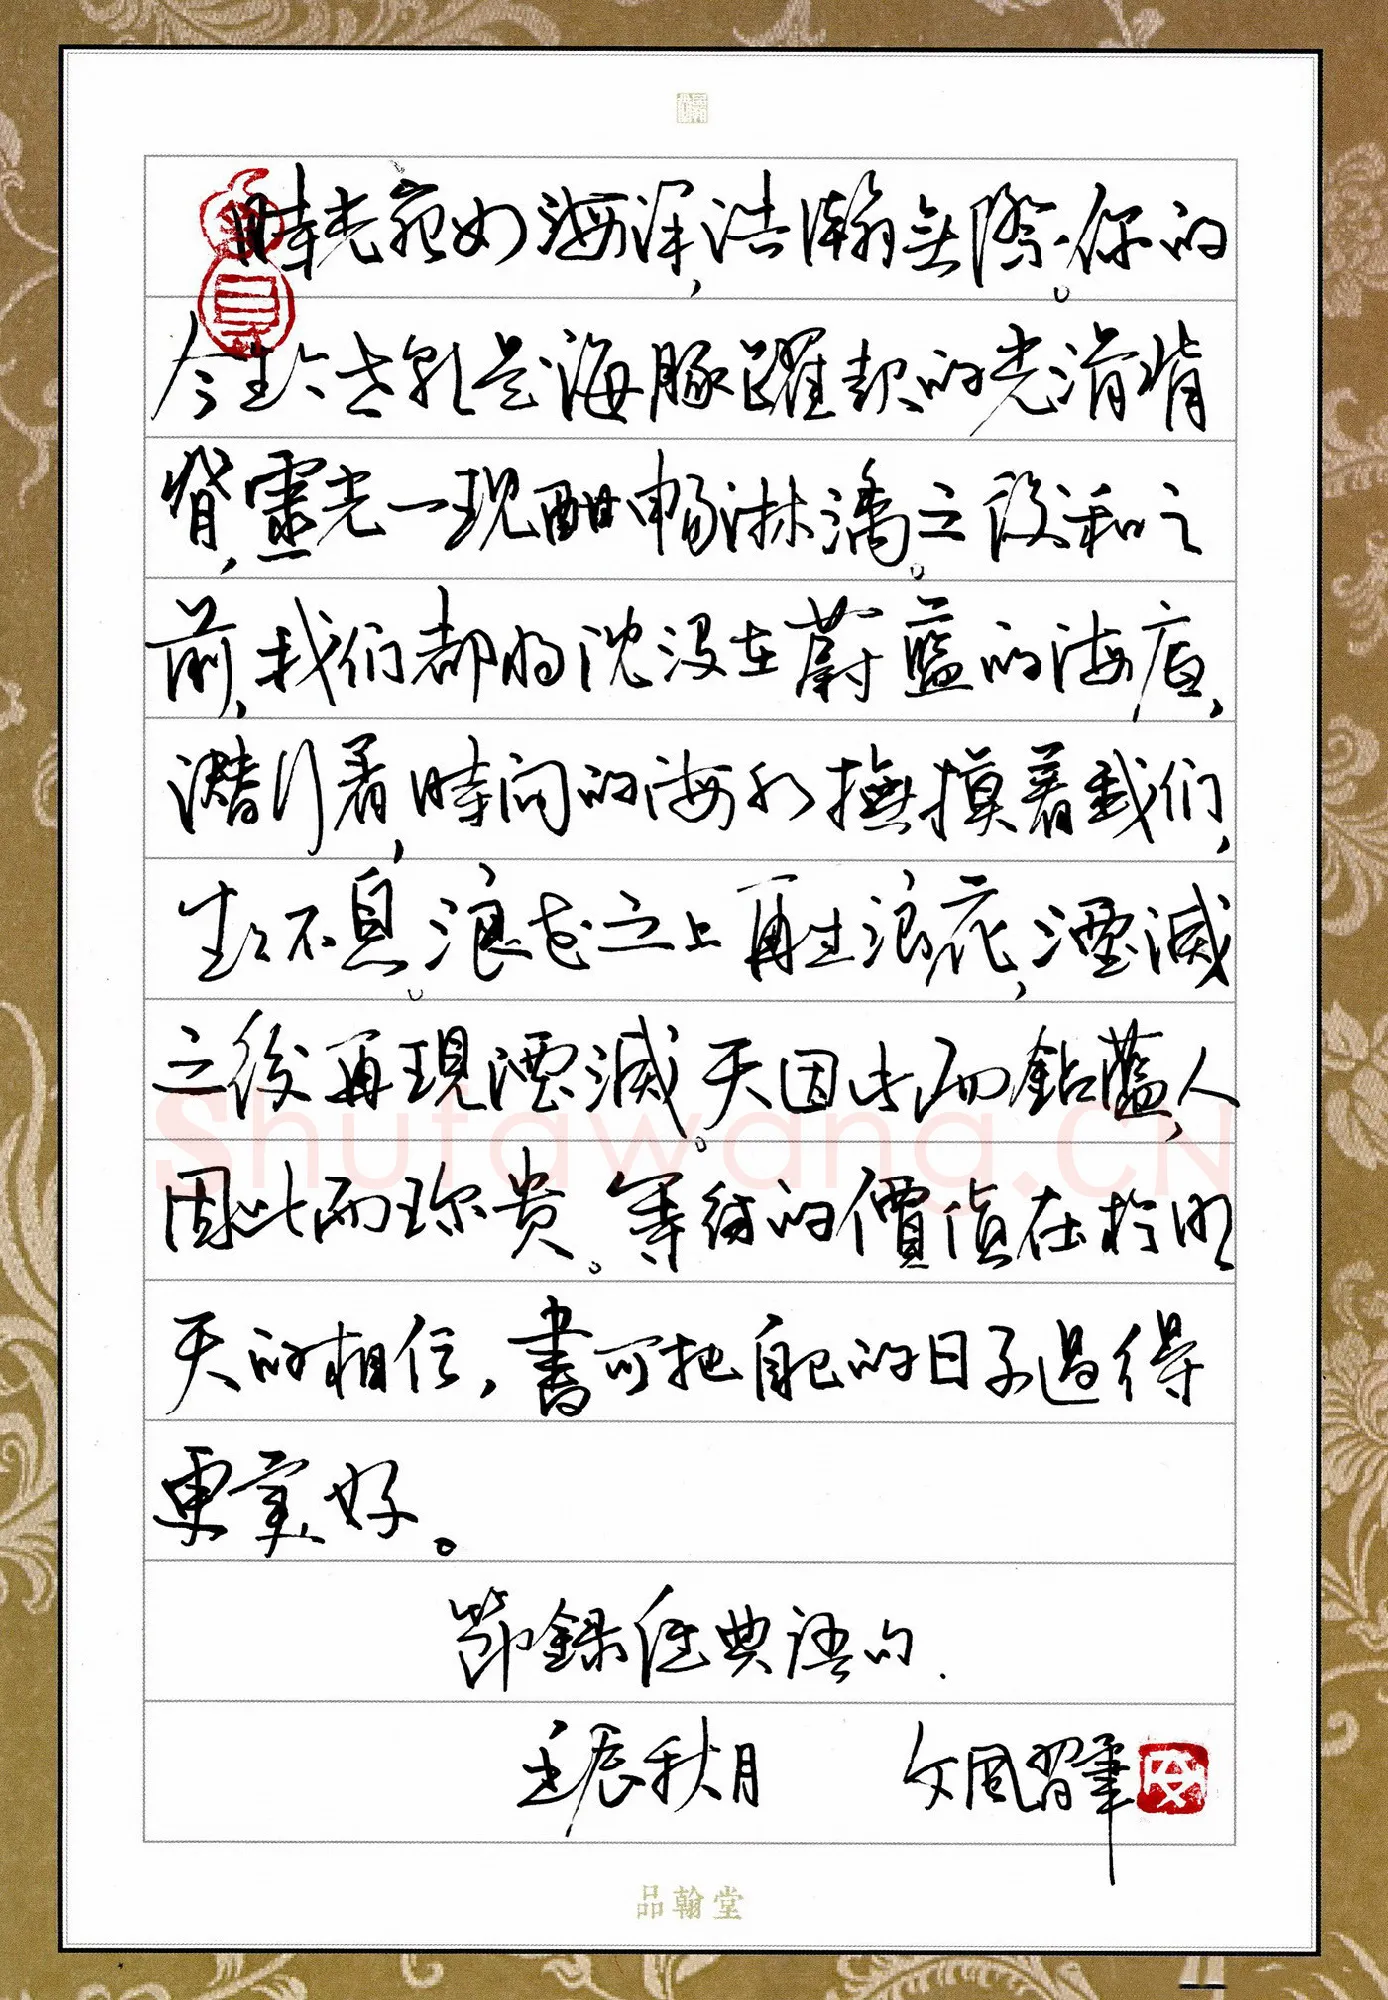 時光宛如海深,浩瀚無際。你的
今生今世就是海豚躍起的光滑脊
背,靈光一現酣暢淋漓。之後和之
前,我们都將沈沒在蔚藍的海底,
潛行着,時间的海水撫摸着我们,
生生不息。浪花之上再生浪花,湮滅
之後再現湮滅。天因此而鈷藍,人
因此而珍贵。等待的價值在於明
天的相信,書可把自己的日子過得
更美好。
節錄经典語句.
壬辰秋月 文風習筆
品翰堂
Shufawang.CN